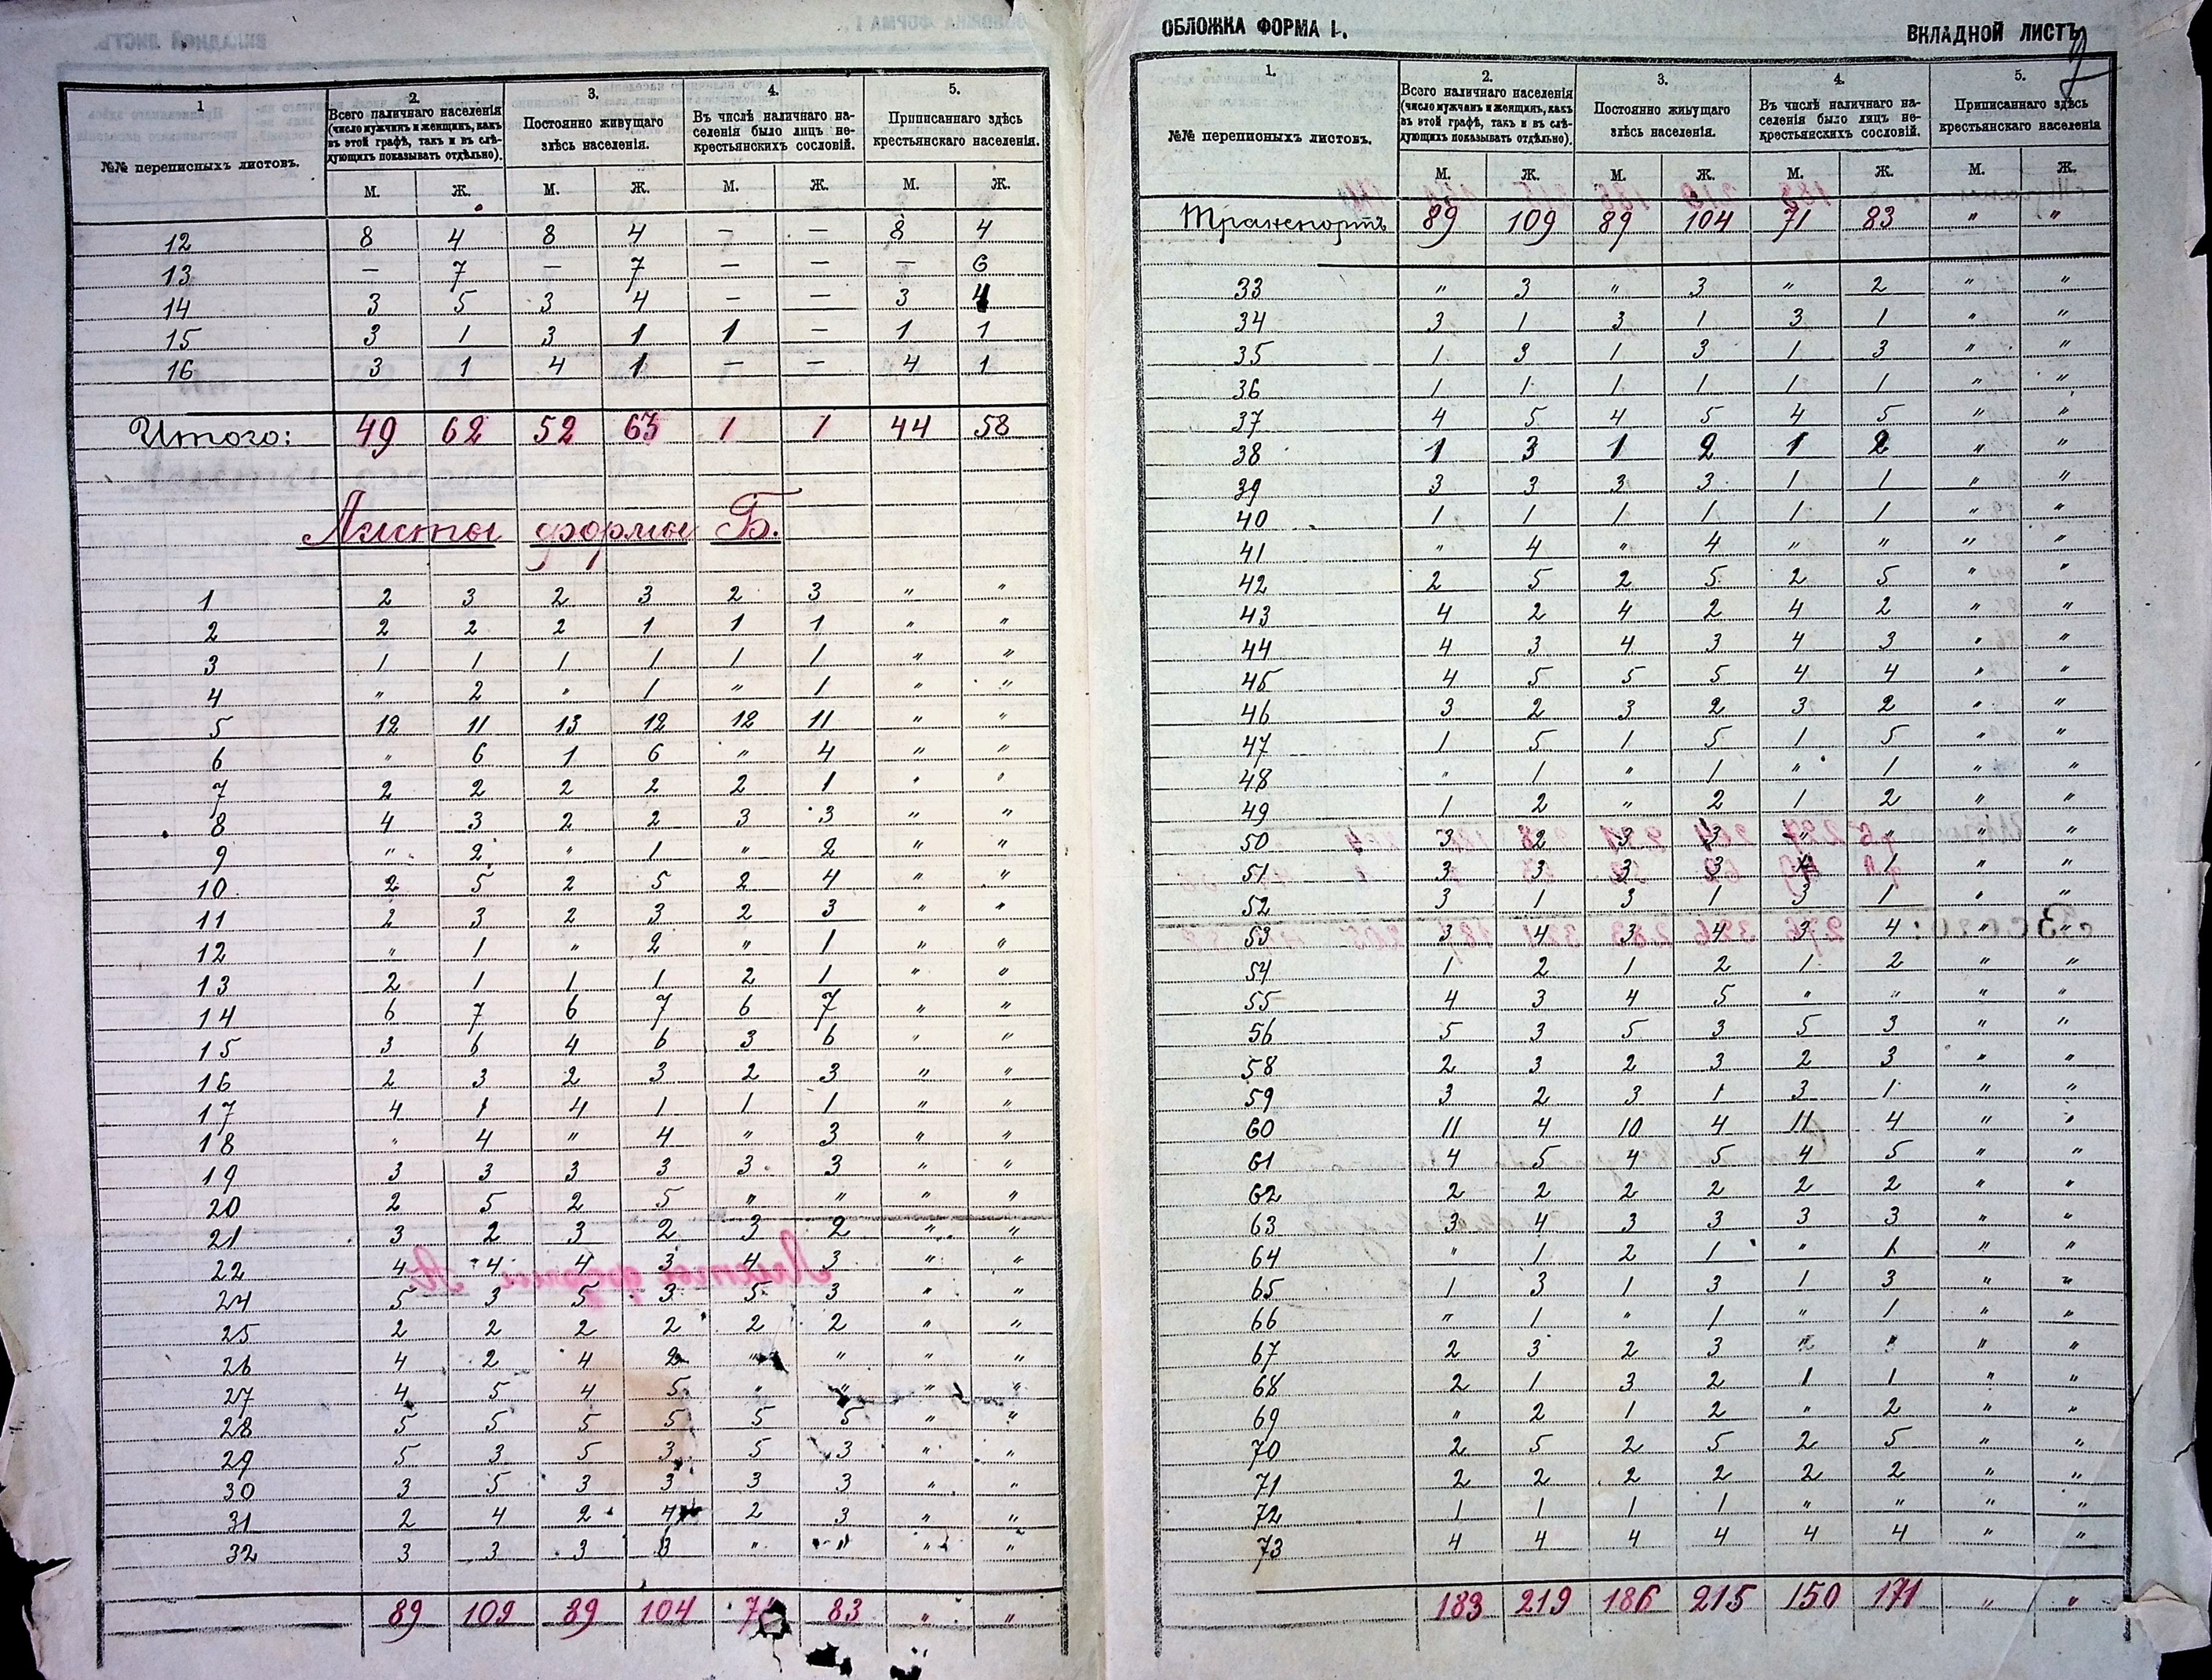 1
2.
Всего наличнаго населенія
(число мужчинъ и женщинъ, какъ
въ этой графѣ, такъ и въ слѣ-
дующихъ показывать отдѣльно).
3.
Постоянно живущаго
здѣсь населенія.
4.
Въ числѣ наличнаго на-
селенія было лицъ не-
крестьянскихъ сословій.
5.
Приписаннаго здѣсь
крестьянскаго населенія.
№№ переписныхъ листовъ.
М. Ж. М. Ж. М. Ж. М. Ж.
12 8 4 8 4 — — 8 4
13 — 7 — 7 — — — 6
14 3 5 3 4 — — 3 4
15 3 1 3 1 1 — 1 1
16 3 1 4 1 — — 4 1
Итого: 49 62 52 63 1 1 44 58
Листы формы Б.
1 2 3 2 3 2 3 " "
2 2 2 2 1 1 1 " "
3 1 1 1 1 1 1 " "
4 " 2 " 1 " 1 " "
5 12 11 13 12 12 11 " "
6 " 6 1 6 " 4 " "
7 2 2 2 2 2 1 " "
8 4 3 2 2 3 3 " "
9 " 2 " 1 " 2 " "
10 2 5 2 5 2 4 " "
11 2 3 2 3 2 3 " "
12 " 1 " 2 " 1 " "
13 2 1 1 1 2 1 " "
14 6 7 6 7 6 7 " "
15 3 6 4 6 3 6 " "
16 2 3 2 3 2 3 " "
17 4 1 4 1 1 1 " "
18 " 4 " 4 " 3 " "
19 3 3 3 3 3 3 " "
20 2 5 2 5 " " " "
21 3 2 3 2 3 2 " "
22 4 4 4 3 4 3 " "
24 5 3 5 3 5 3 " "
25 2 2 2 2 2 2 " "
26 4 2 4 2 " " " "
27 4 5 4 5 " " " "
28 5 5 5 5 5 5 " "
29 5 3 5 3 5 3 " "
30 3 5 3 3 3 3 " "
31 2 4 2 4 2 3 " "
32 3 3 3 3 " " " "
89 109 89 104 83 " "
ОБЛОЖКА ФОРМА I.
ВКЛАДНОЙ ЛИСТЪ
1.
2.
Всего наличнаго населенія
(число мужчинъ и женщинъ, какъ
въ этой графѣ, такъ и въ слѣ-
дующихъ показывать отдѣльно).
3.
Постоянно живущаго
здѣсь населенія.
4.
Въ числѣ наличнаго на-
селенія было лицъ не-
крестьянскихъ сословій.
5.
Приписаннаго здѣсь
крестьянскаго населенія
№№ переписныхъ листовъ.
М. Ж. М. Ж. М. Ж. М. Ж.
Транспортъ 89 109 89 104 71 83 " "
33 " 3 " 3 " 2 " "
34 3 1 3 1 3 1 " "
35 1 3 1 3 1 3 " "
36 1 1 1 1 1 1 " "
37 4 5 4 5 4 5 " "
38 1 3 1 2 1 2 " "
39 3 3 3 3 1 1 " "
40 1 1 1 1 1 1 " "
41 " 4 " 4 " " " "
42 2 5 2 5 2 5 " "
43 4 2 4 2 4 2 " "
44 4 3 4 3 4 3 " "
45 4 5 5 5 4 4 " "
46 3 2 3 2 3 2 " "
47 1 5 1 5 1 5 " "
48 " 1 " 1 " 1 " "
49 1 2 " 2 1 2 " "
50 3 2 3 3 " " " "
51 3 3 3 3 1 " "
52 3 1 3 1 3 1 " "
53 3 4 3 4 3 4 " "
54 1 2 1 2 1 2 " "
55 4 3 4 5 " " " "
56 5 3 5 3 5 3 " "
58 2 3 2 3 2 3 " "
59 3 2 3 1 3 1 " "
60 11 4 10 4 11 4 " "
61 4 5 4 5 4 5 " "
62 2 2 2 2 2 2 " "
63 3 4 3 3 3 3 " "
64 " 1 2 1 " 1 " "
65 1 3 1 3 1 3 " "
66 " 1 " 1 " 1 " "
67 2 3 2 3 " " " "
68 2 1 3 2 1 1 " "
69 " 2 1 2 " 2 " "
70 2 5 2 5 2 5 " "
71 2 2 2 2 2 2 " "
72 1 1 1 1 " " " "
73 4 4 4 4 4 4 " "
183 219 186 215 150 171 " "